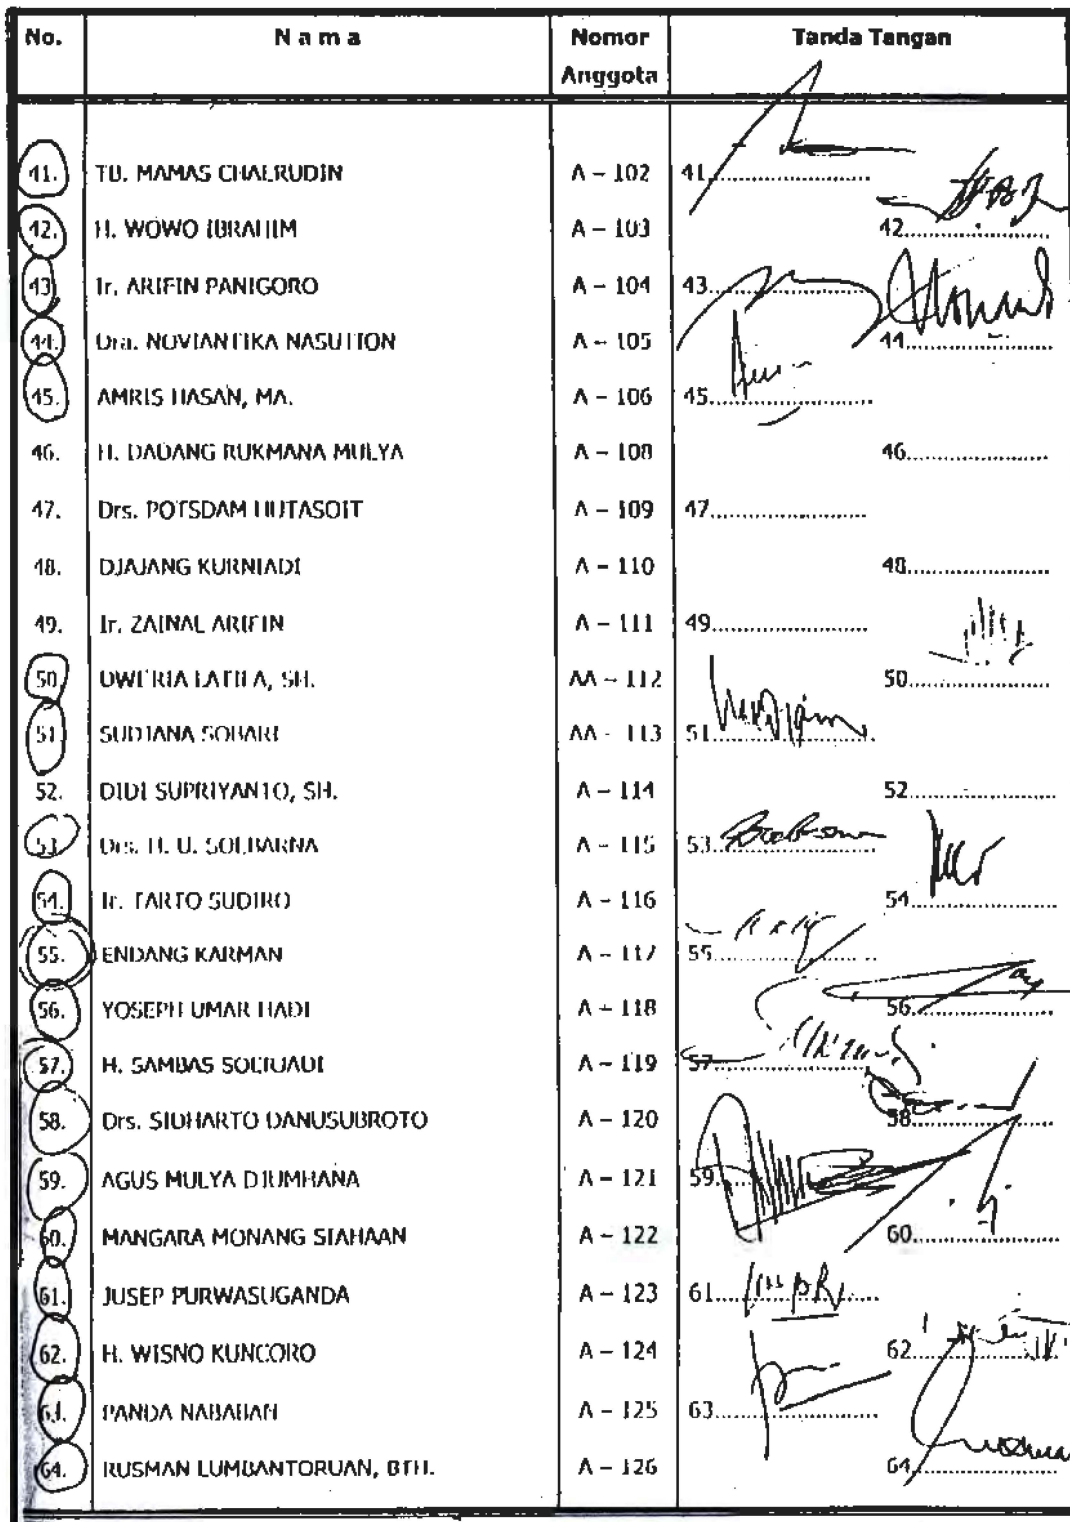 No. N a m a Nomor Anggota Tanda Tangan
41. TB. MAMAS CHAERUDIN A – 102 41
42. H. WOWO IBRAHIM A – 103 42
43. Ir. ARIFIN PANIGORO A – 104 43
44. Dra. NOVIANTIKA NASUTION A – 105 44
45. AMRIS HASAN, MA. A – 106 45
46. H. DADANG RUKMANA MULYA A – 108 46
47. Drs. POTSDAM HUTASOIT A – 109 47
48. DJAJANG KURNIADI A – 110 48
49. Ir. ZAINAL ARIFIN A – 111 49
50. DWI RIA LATIFA, SH. AA – 112 50
51. SUDIANA SOBARI AA – 113 51
52. DIDI SUPRIYANTO, SH. A – 114 52
53. Drs. H. U. SOEBARNA A – 115 53
54. Ir. TARTO SUDIRO A – 116 54
55. ENDANG KARMAN A – 117 55
56. YOSEPH UMAR HADI A – 118 56
57. H. SAMBAS SOERJADI A – 119 57
58. Drs. SIDHARTO DANUSUBROTO A – 120 58
59. AGUS MULYA DJUMHANA A – 121 59
60. MANGARA MONANG SIAHAAN A – 122 60
61. JUSEP PURWASUGANDA A – 123 61
62. H. WISNO KUNCORO A – 124 62
63. PANDA NABABAN A – 125 63
64. RUSMAN LUMBANTORUAN, BTH. A – 126 64